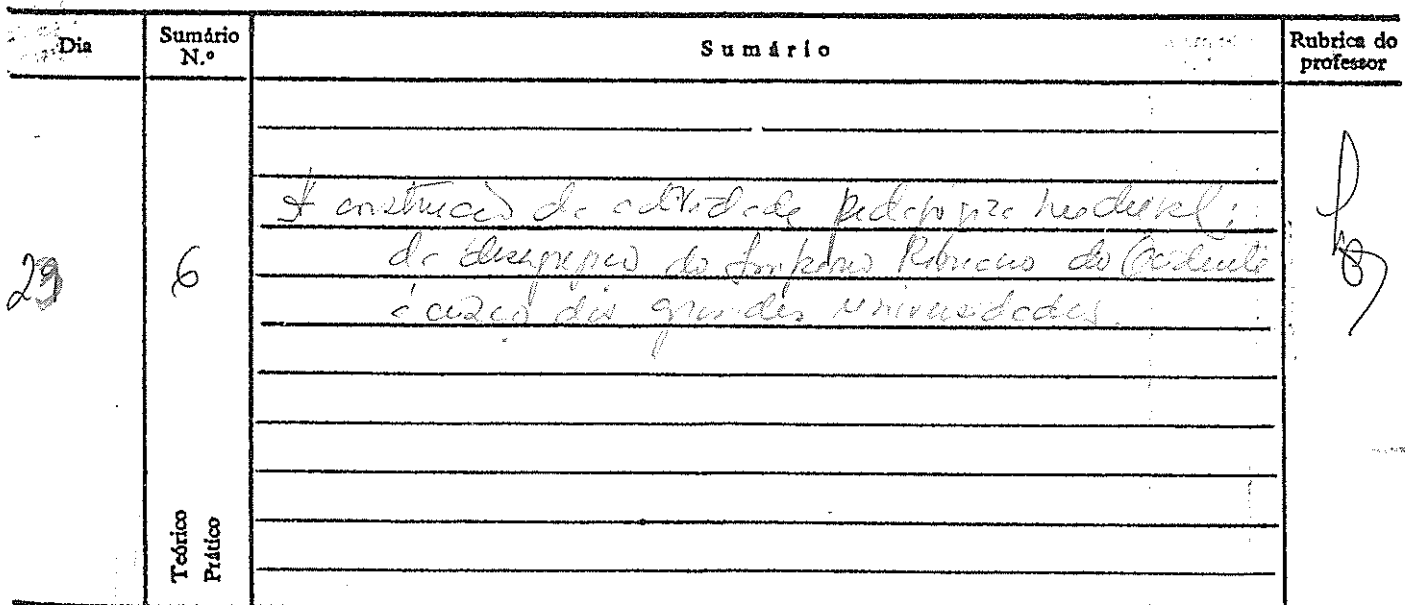 Dia
Sumário N.º
Sumário
Rubrica do professor
29
6
A construção da actividade pedagógica medieval:
da desagregação do Império Romano do Ocidente
à criação das grandes Universidades.
Teórico
Prático